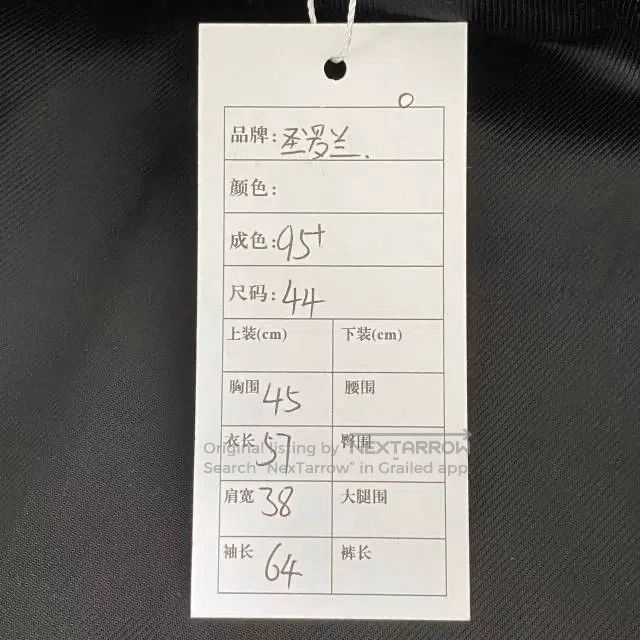 品牌: 圣罗兰.
颜色:
成色: 95+
尺码: 44
上装(cm) 下装(cm)
胸围 45 腰围
衣长 57 臀围
Original listing by NEXTARROW
Search "NexTarrow" in Grailed app
肩宽 38 大腿围
袖长 64 裤长